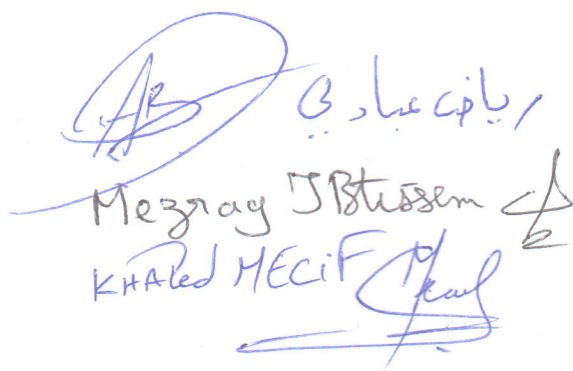 AB رياض عبادي
Mezrag IBtissem
KHAled MECiF